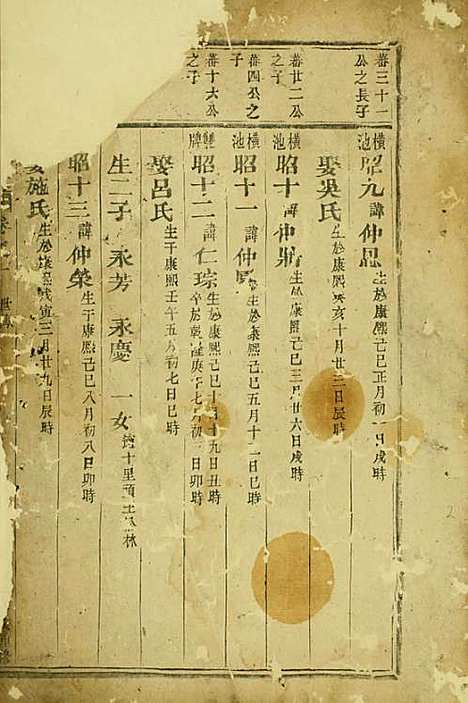 蕃三十一
公之長子
橫池
昭九諱仲恩生於康熙己巳正月初一日戌時
娶吳氏生於康熙癸亥十月廿三日辰時
蕃廿二公
之子
昭十諱仲生於康熙己巳三月廿六日戌時
蕃四公之
子
橫池
昭十一諱仲生於康熙己巳五月十二日巳時
蕃十六公
之子
牌
昭十二諱仁琮生于康熙己巳十月十九日丑時
卒於乾隆庚午七月初二日卯時
娶呂氏生于康熙壬午五月初七日巳時
生二子 永芳 永慶 一女適十里頭林
昭十三諱仲榮生于康熙己巳八月初八日卯時
娶施氏生於康熙戊寅三月廿九日辰時